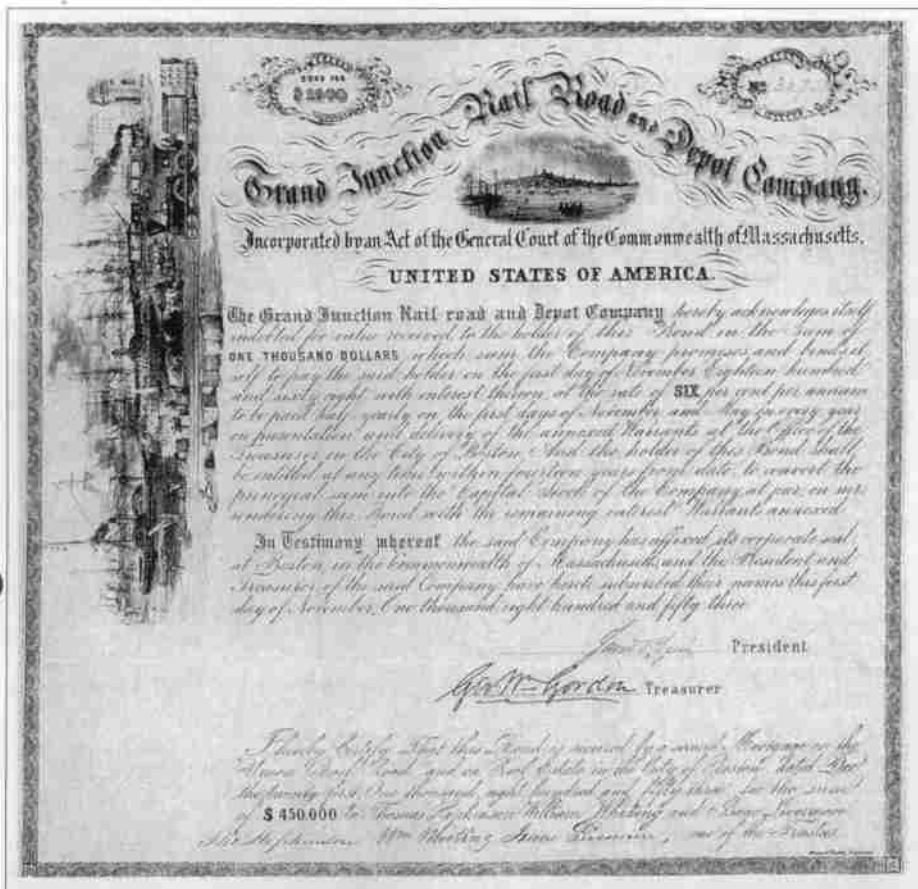 BOND FOR
$1000
No
Grand Junction Rail Road and Depot Company.
Incorporated by an Act of the General Court of the Commonwealth of Massachusetts.
UNITED STATES OF AMERICA.
The Grand Junction Rail road and Depot Company hereby acknowleges itself
indebted for value received to the holder of this Bond in the Sum of
ONE THOUSAND DOLLARS which sum the Company promises and binds it
self to pay the said holder on the first day of November Eighteen hundred
and sixty eight with interest thereon at the rate of SIX per cent per annum
to be paid half yearly on the first days of November and May in every year
on presentation and delivery of the annexed Warrants at the Office of the
Treasurer in the City of Boston. And the holder of this Bond shall
be entitled at any time within fourteen years from date, to convert the
principal sum into the Capital Stock of the Company at par, on sur
rendering this Bond with the remaining interest Warrants annexed
In Testimony whereof the said Company has affixed its corporate seal
at Boston in the Commonwealth of Massachusetts and the President and
Treasurer of the said Company have hereto subscribed their names this first
day of November, One thousand eight hundred and fifty three
President
Geo Wm Gordon Treasurer
I hereby Certify That this Bond is secured by a Mortgage on the
Road and on Real Estate in the City of Boston dated
the twenty first, One thousand, eight hundred and fifty three for the sum
of $450.000 to Thomas Hopkinson William Whiting and
Wm Whiting one of the Trustees